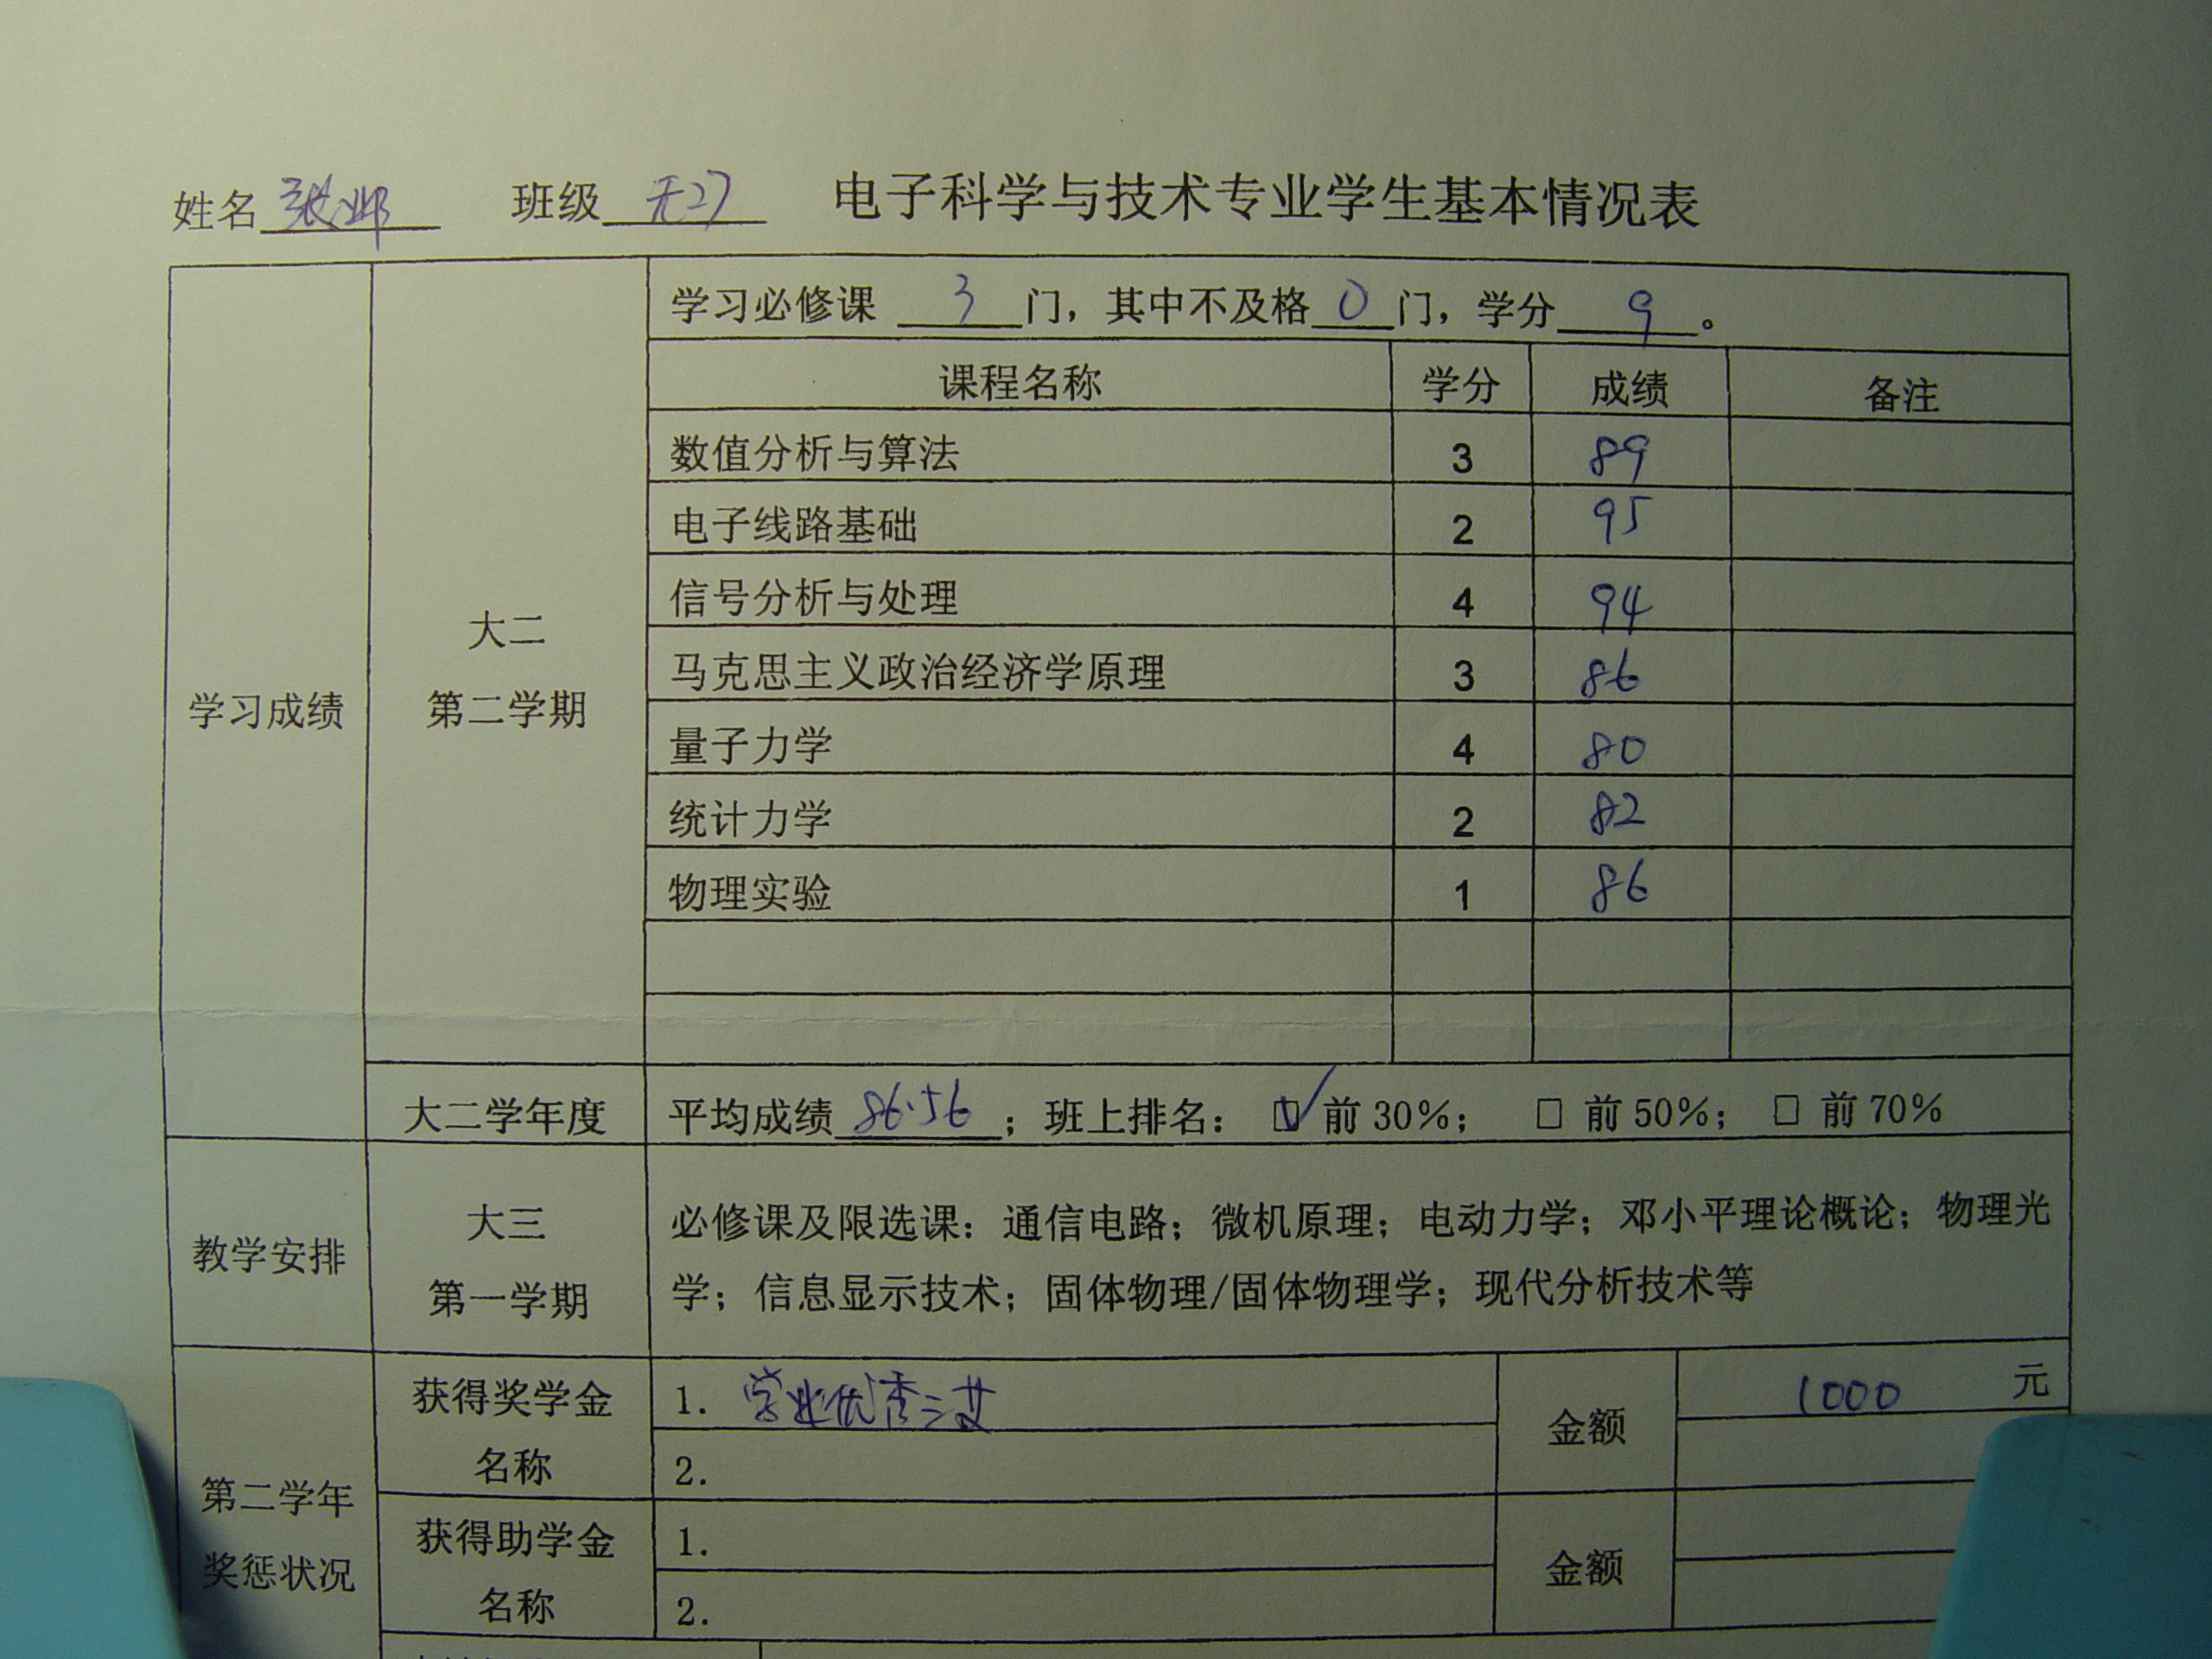 姓名 张邺 班级 无27 电子科学与技术专业学生基本情况表
学习必修课 3 门，其中不及格 0 门，学分 9 。
课程名称 学分 成绩 备注
数值分析与算法 3 89
电子线路基础 2 95
信号分析与处理 4 94
马克思主义政治经济学原理 3 86
量子力学 4 80
统计力学 2 82
物理实验 1 86
学习成绩
大二
第二学期
大二学年度 平均成绩 86.56 ；班上排名： ☑ 前 30%； □ 前 50%； □ 前 70%
教学安排
大三
第一学期
必修课及限选课：通信电路；微机原理；电动力学；邓小平理论概论；物理光
学；信息显示技术；固体物理/固体物理学；现代分析技术等
第二学年
奖惩状况
获得奖学金
名称
1. 学业优秀三艾
2.
金额
1000 元
获得助学金
名称
1.
2.
金额